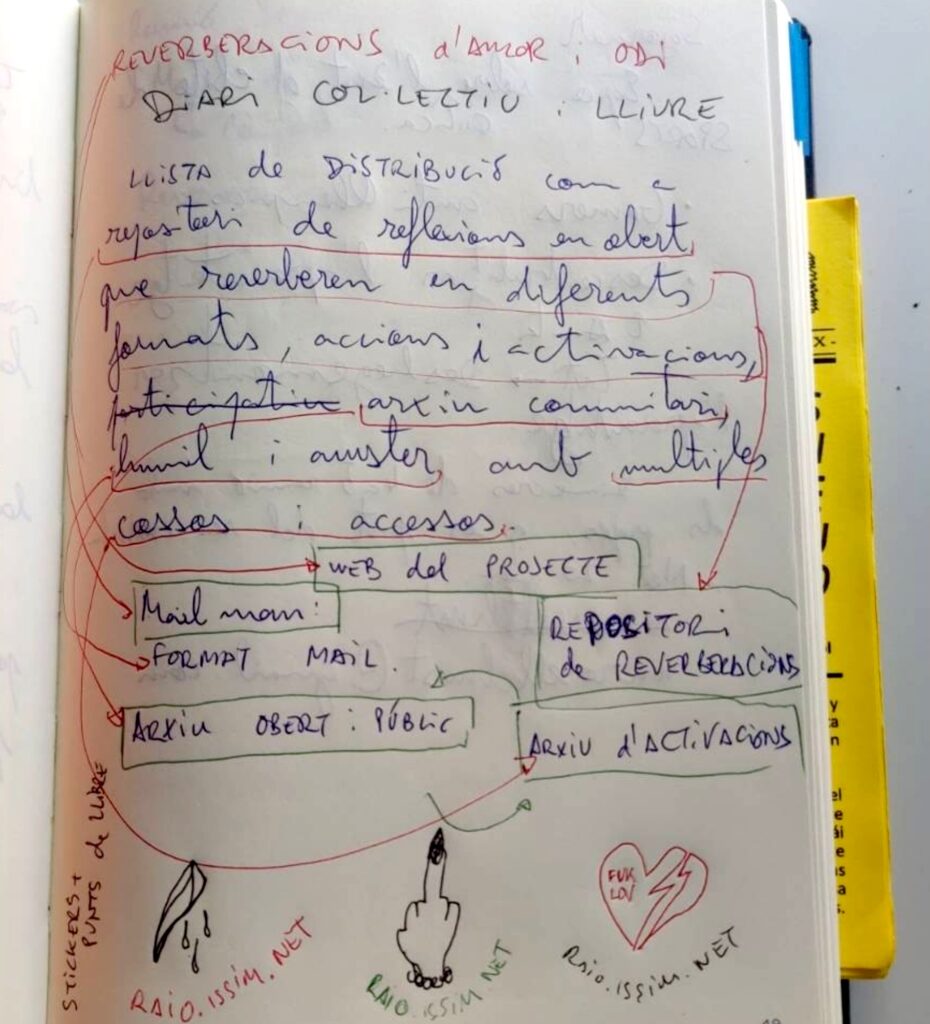 REVERBERACIONS d'AMOR i ODI
DIARI COL·LECTIU i LLIURE
LLISTA de DISTRIBUCIÓ com a
repositori de reflexions en obert
que reverberen en diferents
formats, accions i activacions,
participatiu arxiu comunitari,
humil i auster, amb multiples
cossos i accessos.
WEB del PROJECTE
Mail man:
REPOSITORI
de REVERBERACIONS
FORMAT MAIL.
ARXIU OBERT i PÚBLIC
ARXIU d'ACTIVACIONS
STICKERS +
PUNTS de LLIBRE
FUK
LOV
RAIO.ISSIM.NET
RAIO.ISSIM.NET
RAIO.ISSIM.NET